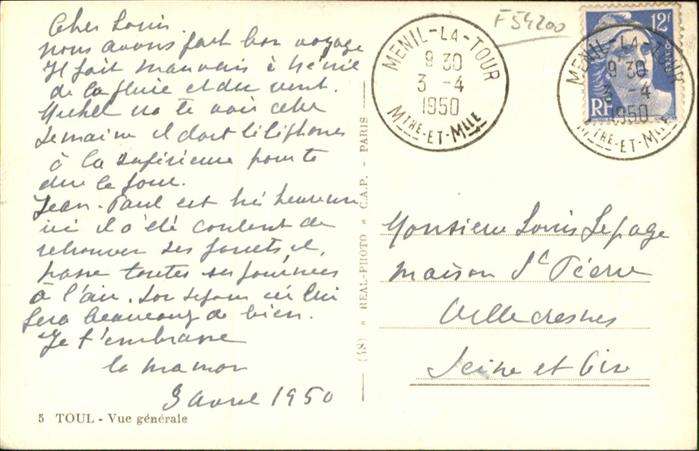 Cher Louis
nous avons fait bon voyage
Il fait mauvais à Ménil
de la pluie et du vent.
Michel va te voir cette
semaine il doit téléphoner
à la Supérieure pour te
dire le jour.
Jean-Paul est très heureux
ici il a été content de
retrouver ses jouets il
passe toutes ses journées
à l'air. Son séjour ici lui
fera beaucoup de bien.
Je t'embrasse
ta maman
3 avril 1950
5 TOUL - Vue générale
(48) REAL-PHOTO C.A.P. - PARIS
F 54200
MENIL-LA-TOUR
9 30
3 -4
1950
MTHE-ET-MLLE
12F
RF
MENIL-LA-TOUR
9 30
3 -4
1950
MTHE-ET-MLLE
Monsieur Louis Lepage
maison St Pierre
Villecresnes
Seine et Oise